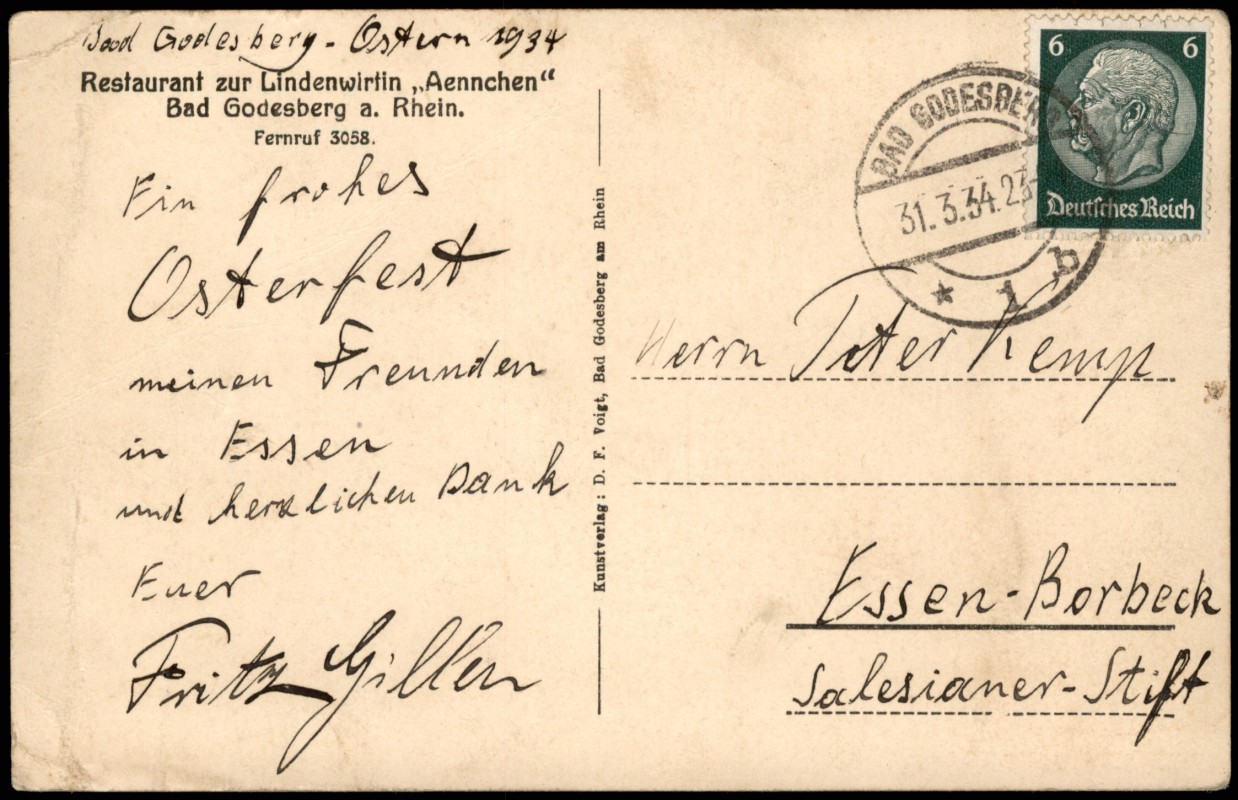 Bad Godesberg - Ostern 1934
Restaurant zur Lindenwirtin „Aennchen“
Bad Godesberg a. Rhein.
Fernruf 3058.
Ein frohes
Osterfest
meinen Freunden
in Essen
und herzlichen Dank
Euer
Fritz Gillen
Kunstverlag: D. F. Voigt, Bad Godesberg am Rhein
6 6
Deutsches Reich
BAD GODESBERG
31.3.34.23
* 1 b
Herrn Peter Kemp
Essen-Borbeck
Salesianer-Stift